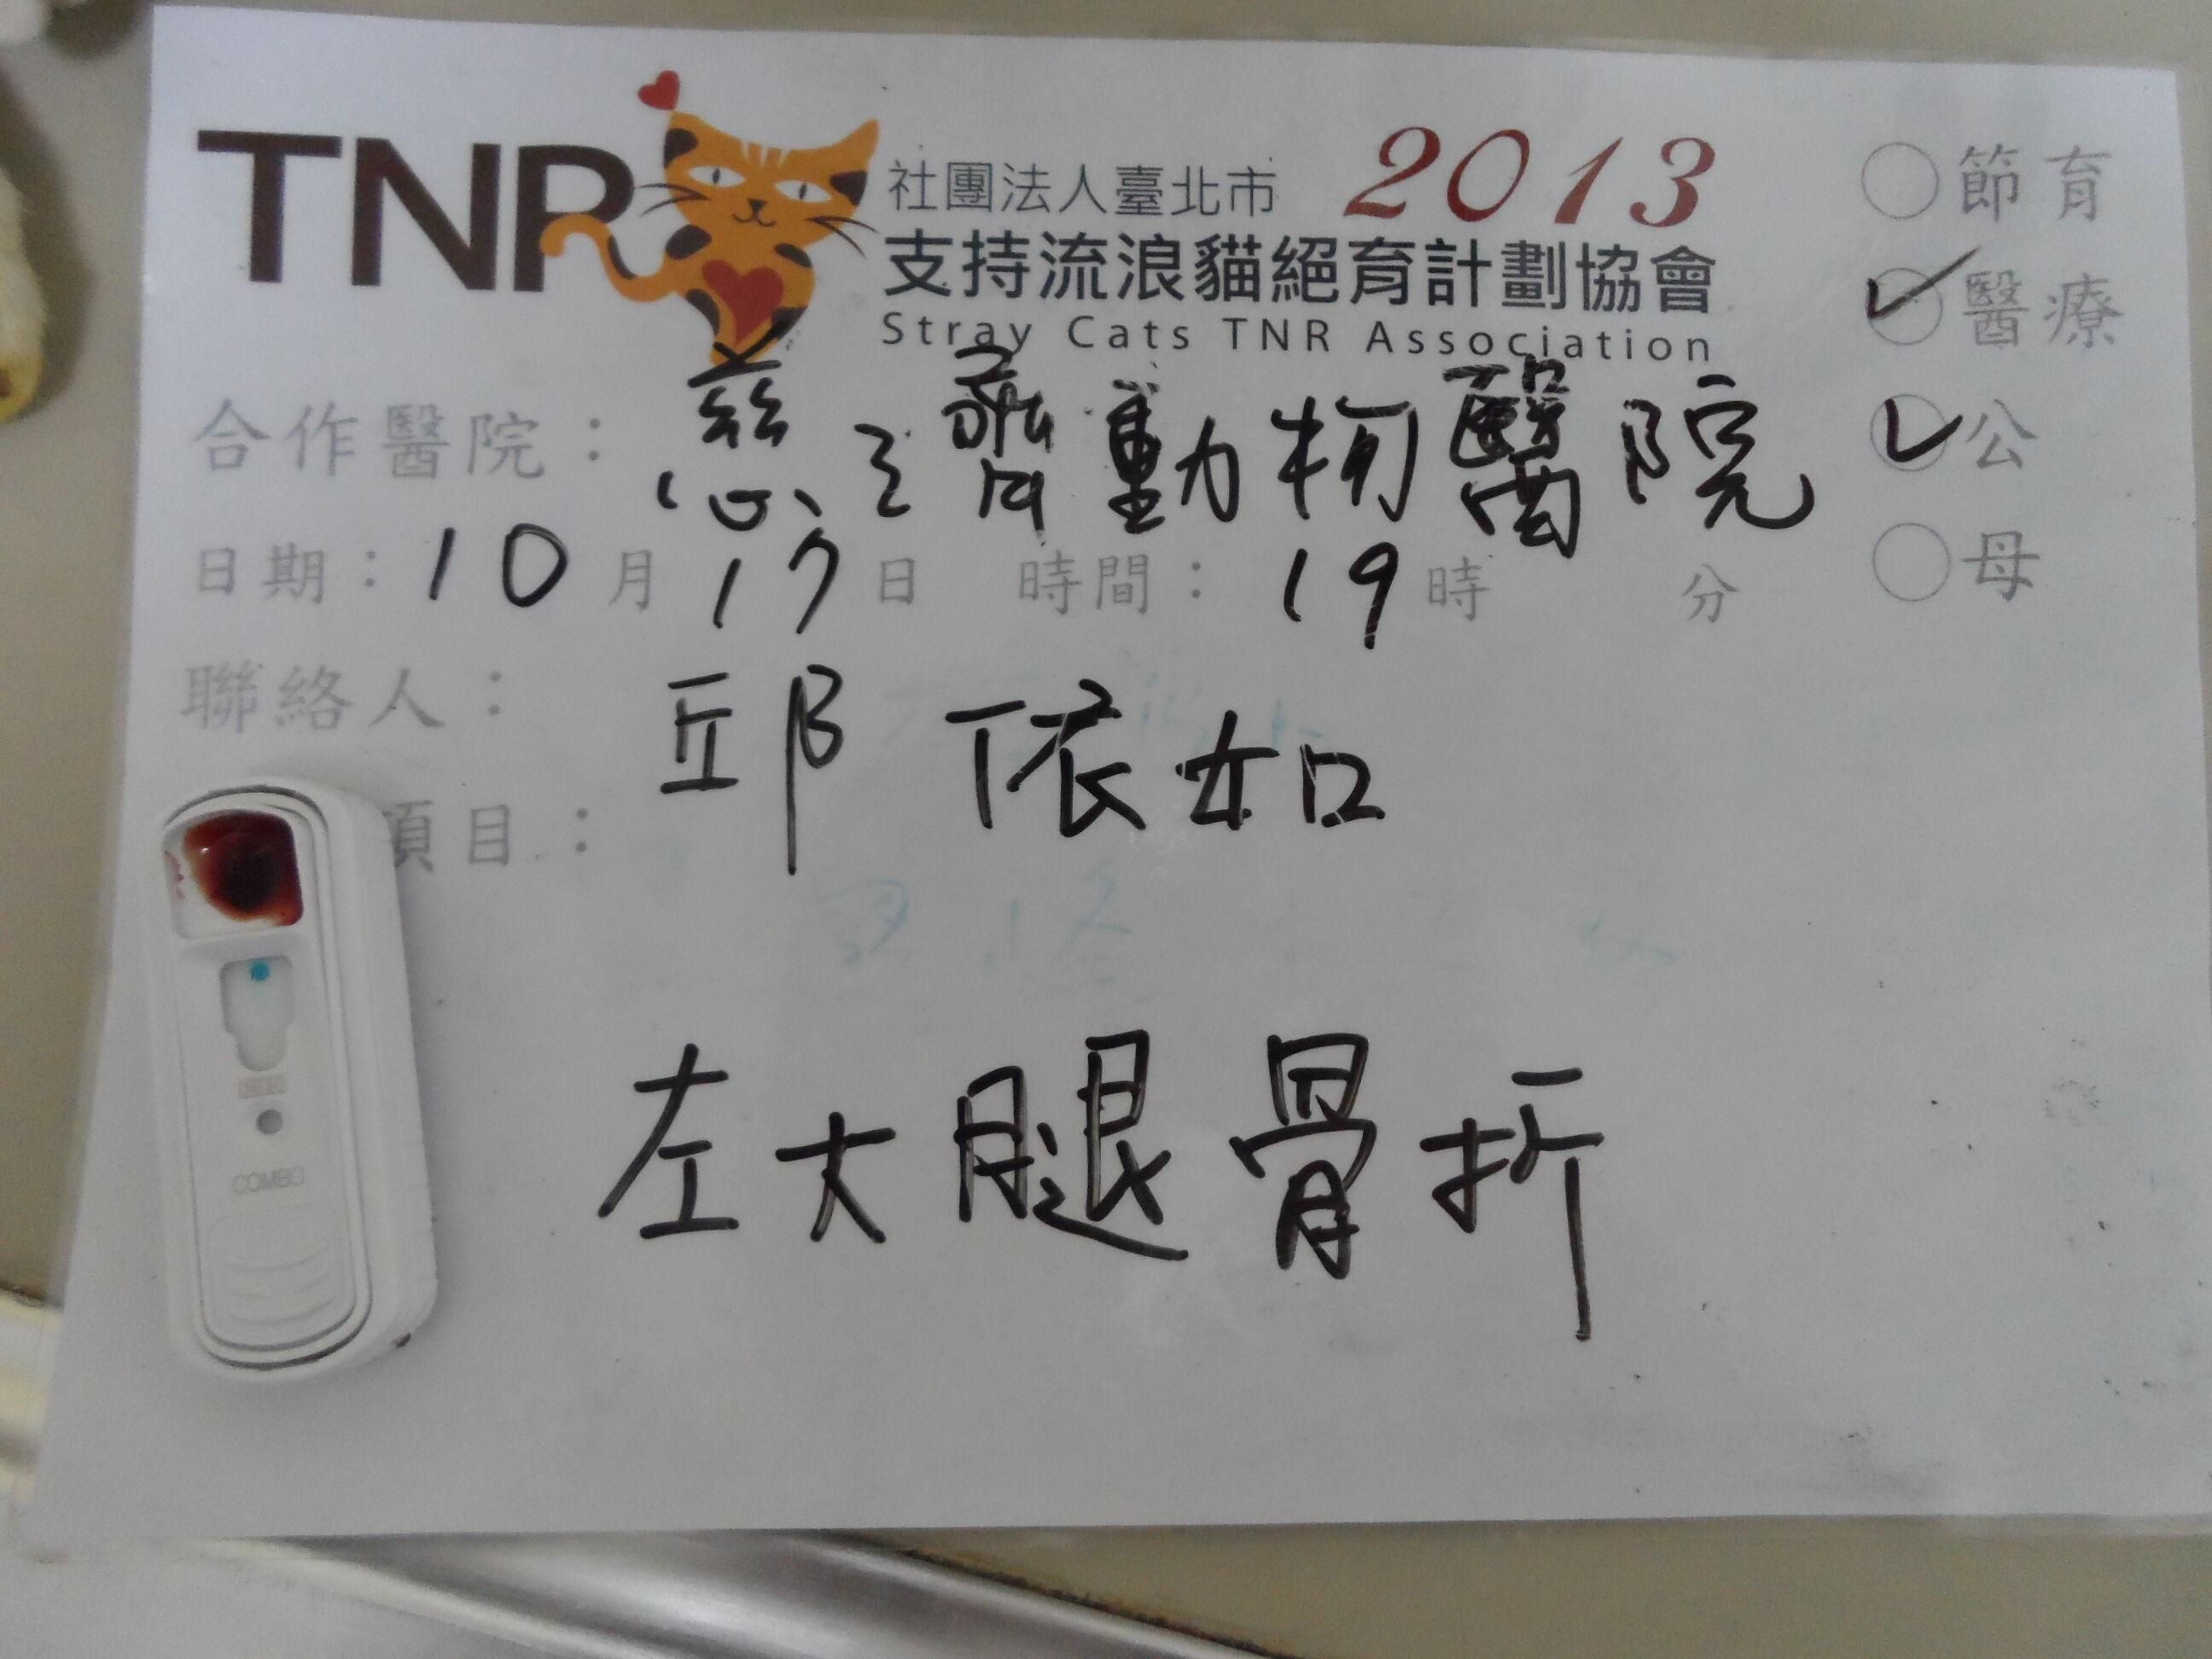 TNR
社團法人臺北市 2013
支持流浪貓絕育計劃協會
Stray Cats TNR Association
節育
醫療
公
母
合作醫院：慈之齋動物醫院
日期：10月17日 時間：19時 分
聯絡人：邱依如
項目：
左大腿骨折
COMBO